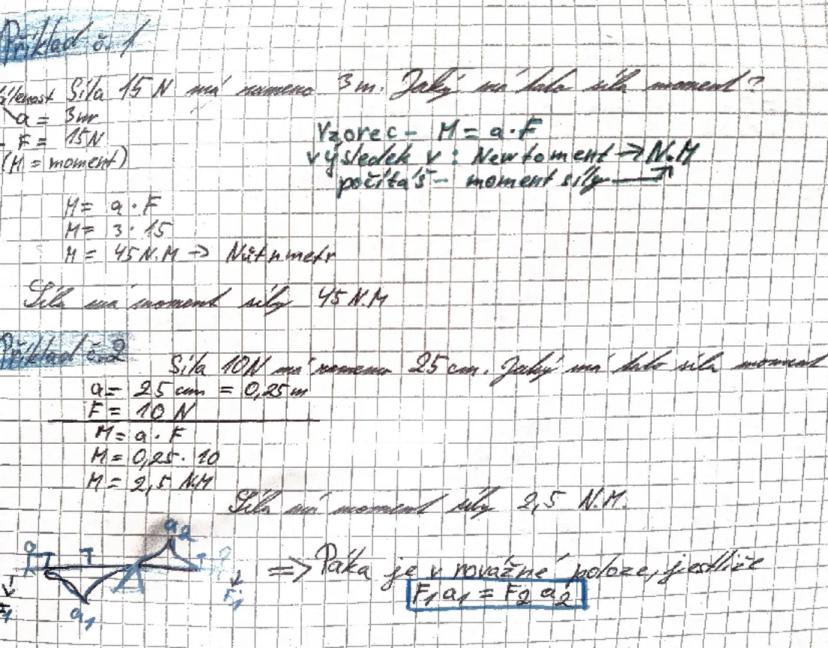 Příklad č. 1
Síla 15 N má rameno 3 m. Jaký má tato síla moment?
a = 3m
F = 15N
(M = moment)
Vzorec - M = a · F
výsledek v : Newtoment → N.M
počítáš - moment síly
M = a · F
M = 3 · 15
M = 45 N.M →
Síla má moment síly 45 N.M
Příklad č. 2
Síla 10N má rameno 25 cm. Jaký má tato síla moment
a = 25 cm = 0,25 m
F = 10 N
M = a · F
M = 0,25 · 10
M = 2,5 N.M
Síla má moment síly 2,5 N.M.
a2
=> Páka je v rovážné poloze, jestliže
F1 a1 = F2 a2
F1
F1
a1